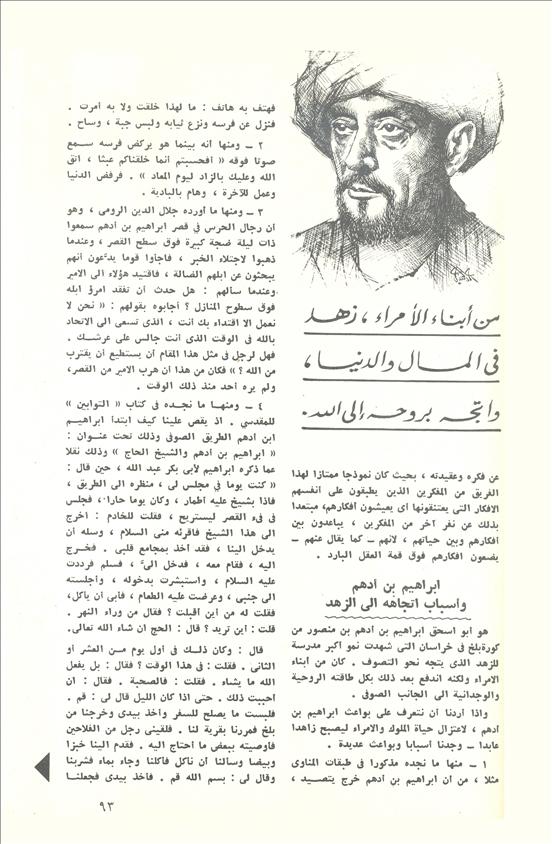 من أبناء الأمراء، زهد
فى المال والدنيا،
واتجه بروحه إلى الله.
عن فكره وعقيدته ، بحيث كان نموذجا ممتازا لهذا
الفريق من المفكرين الذين يطبقون على انفسهم
الافكار التى يعتنقونها أى يعيشون أفكارهم، مبتعدا
بذلك عن نفر آخر من المفكرين ، يباعدون بين
أفكارهم وبين حياتهم ، لانهم ــ كما يقال عنهم ــ
يضعون أفكارهم فوق قمة العقل البارد .
ابراهيم بن أدهم
وأسباب اتجاهه الى الزهد
هو ابو اسحق ابراهيم بن ادهم بن منصور من
كورة بلخ فى خراسان التى شهدت نمو أكبر مدرسة
للزهد الذى يتجه نحو التصوف . كان من ابناء
الامراء ولكنه اندفع بعد ذلك بكل طاقته الروحية
والوجدانية الى الجانب الصوفى .
واذا أردنا أن نتعرف على بواعث ابراهيم بن
أدهم ، لاعتزال حياة الملوك والامراء ليصبح زاهدا
عابدا ــ وجدنا أسبابا وبواعث عديدة .
١ ــ منها ما نجده مذكورا فى طبقات المناوى
مثلا ، من ان ابراهيم بن أدهم خرج يتصيد ،
فهتف به هاتف : ما لهذا خلقت ولا به أمرت .
فنزل عن فرسه ونزع ثيابه ولبس جبة ، وساح .
٢ ــ ومنها أنه بينما هو يركض فرسه سمع
صوتا فوقه « أفحسبتم أنما خلقناكم عبثا ، اتق
الله وعليك بالزاد ليوم المعاد » . فرفض الدنيا
وعمل للآخرة ، وهام بالبادية .
٣ ــ ومنها ما أورده جلال الدين الرومى ، وهو
ان رجال الحرس فى قصر ابراهيم بن أدهم سمعوا
ذات ليلة ضجة كبيرة فوق سطح القصر ، وعندما
ذهبوا لاجتلاء الخبر ، فاجأوا قوما يدّعون أنهم
يبحثون عن ابلهم الضالة ، فاقتيد هؤلاء الى الامير
وعندما سألهم : هل حدث أن تفقد امرؤ ابله
فوق سطوح المنازل ؟ أجابوه بقولهم : « نحن لا
نعمل الا اقتداء بك أنت ، الذى تسعى الى الاتحاد
بالله فى الوقت الذى أنت جالس على عرشك .
فهل لرجل فى مثل هذا المقام أن يستطيع أن يقترب
من الله ؟ » فكان من هذا ان هرب الامير من القصر،
ولم يره احد منذ ذلك الوقت .
٤ ــ ومنها ما نجده فى كتاب « التوابين »
للمقدسى . اذ يقص علينا كيف ابتدأ ابراهيم
ابن ادهم الطريق الصوفى وذلك تحت عنوان :
« ابراهيم بن أدهم والشيخ الحاج » وذلك نقلا
عما ذكره ابراهيم لأبى بكر عبد الله ، حين قال :
« كنت يوما فى مجلس لى ، منظره الى الطريق ،
فاذا بشيخ عليه أطمار ، وكان يوما حارا ، فجلس
فى فىء القصر ليستريح ، فقلت للخادم : اخرج
الى هذا الشيخ فاقرئه منى السلام ، وسله أن
يدخل الينا ، فقد أخذ بمجامع قلبى . فخرج
اليه ، فقام معه ، فدخل الىّ ، فسلم فرددت
عليه السلام ، واستبشرت بدخوله ، وأجلسته
الى جنبى ، وعرضت عليه الطعام ، فأبى أن يأكل،
فقلت له من أين أقبلت ؟ فقال من وراء النهر .
قلت : أين تريد ؟ قال : الحج ان شاء الله تعالى.
قال : وكان ذلك فى أول يوم من العشر أو
الثانى . فقلت : فى هذا الوقت ؟ فقال : بل يفعل
الله ما يشاء . فقلت : فالصحبة . فقال : ان
احببت ذلك . حتى اذا كان الليل قال لى : قم .
فلبست ما يصلح للسفر وأخذ بيدى وخرجنا من
بلخ فمررنا بقرية لنا . فلقينى رجل من الفلاحين
فأوصيته ببعض ما أحتاج اليه . فقدم الينا خبزا
وبيضا وسألنا أن نأكل فأكلنا وجاء بماء فشربنا
وقال لى : بسم الله قم . فأخذ بيدى فجعلنا
٩٣